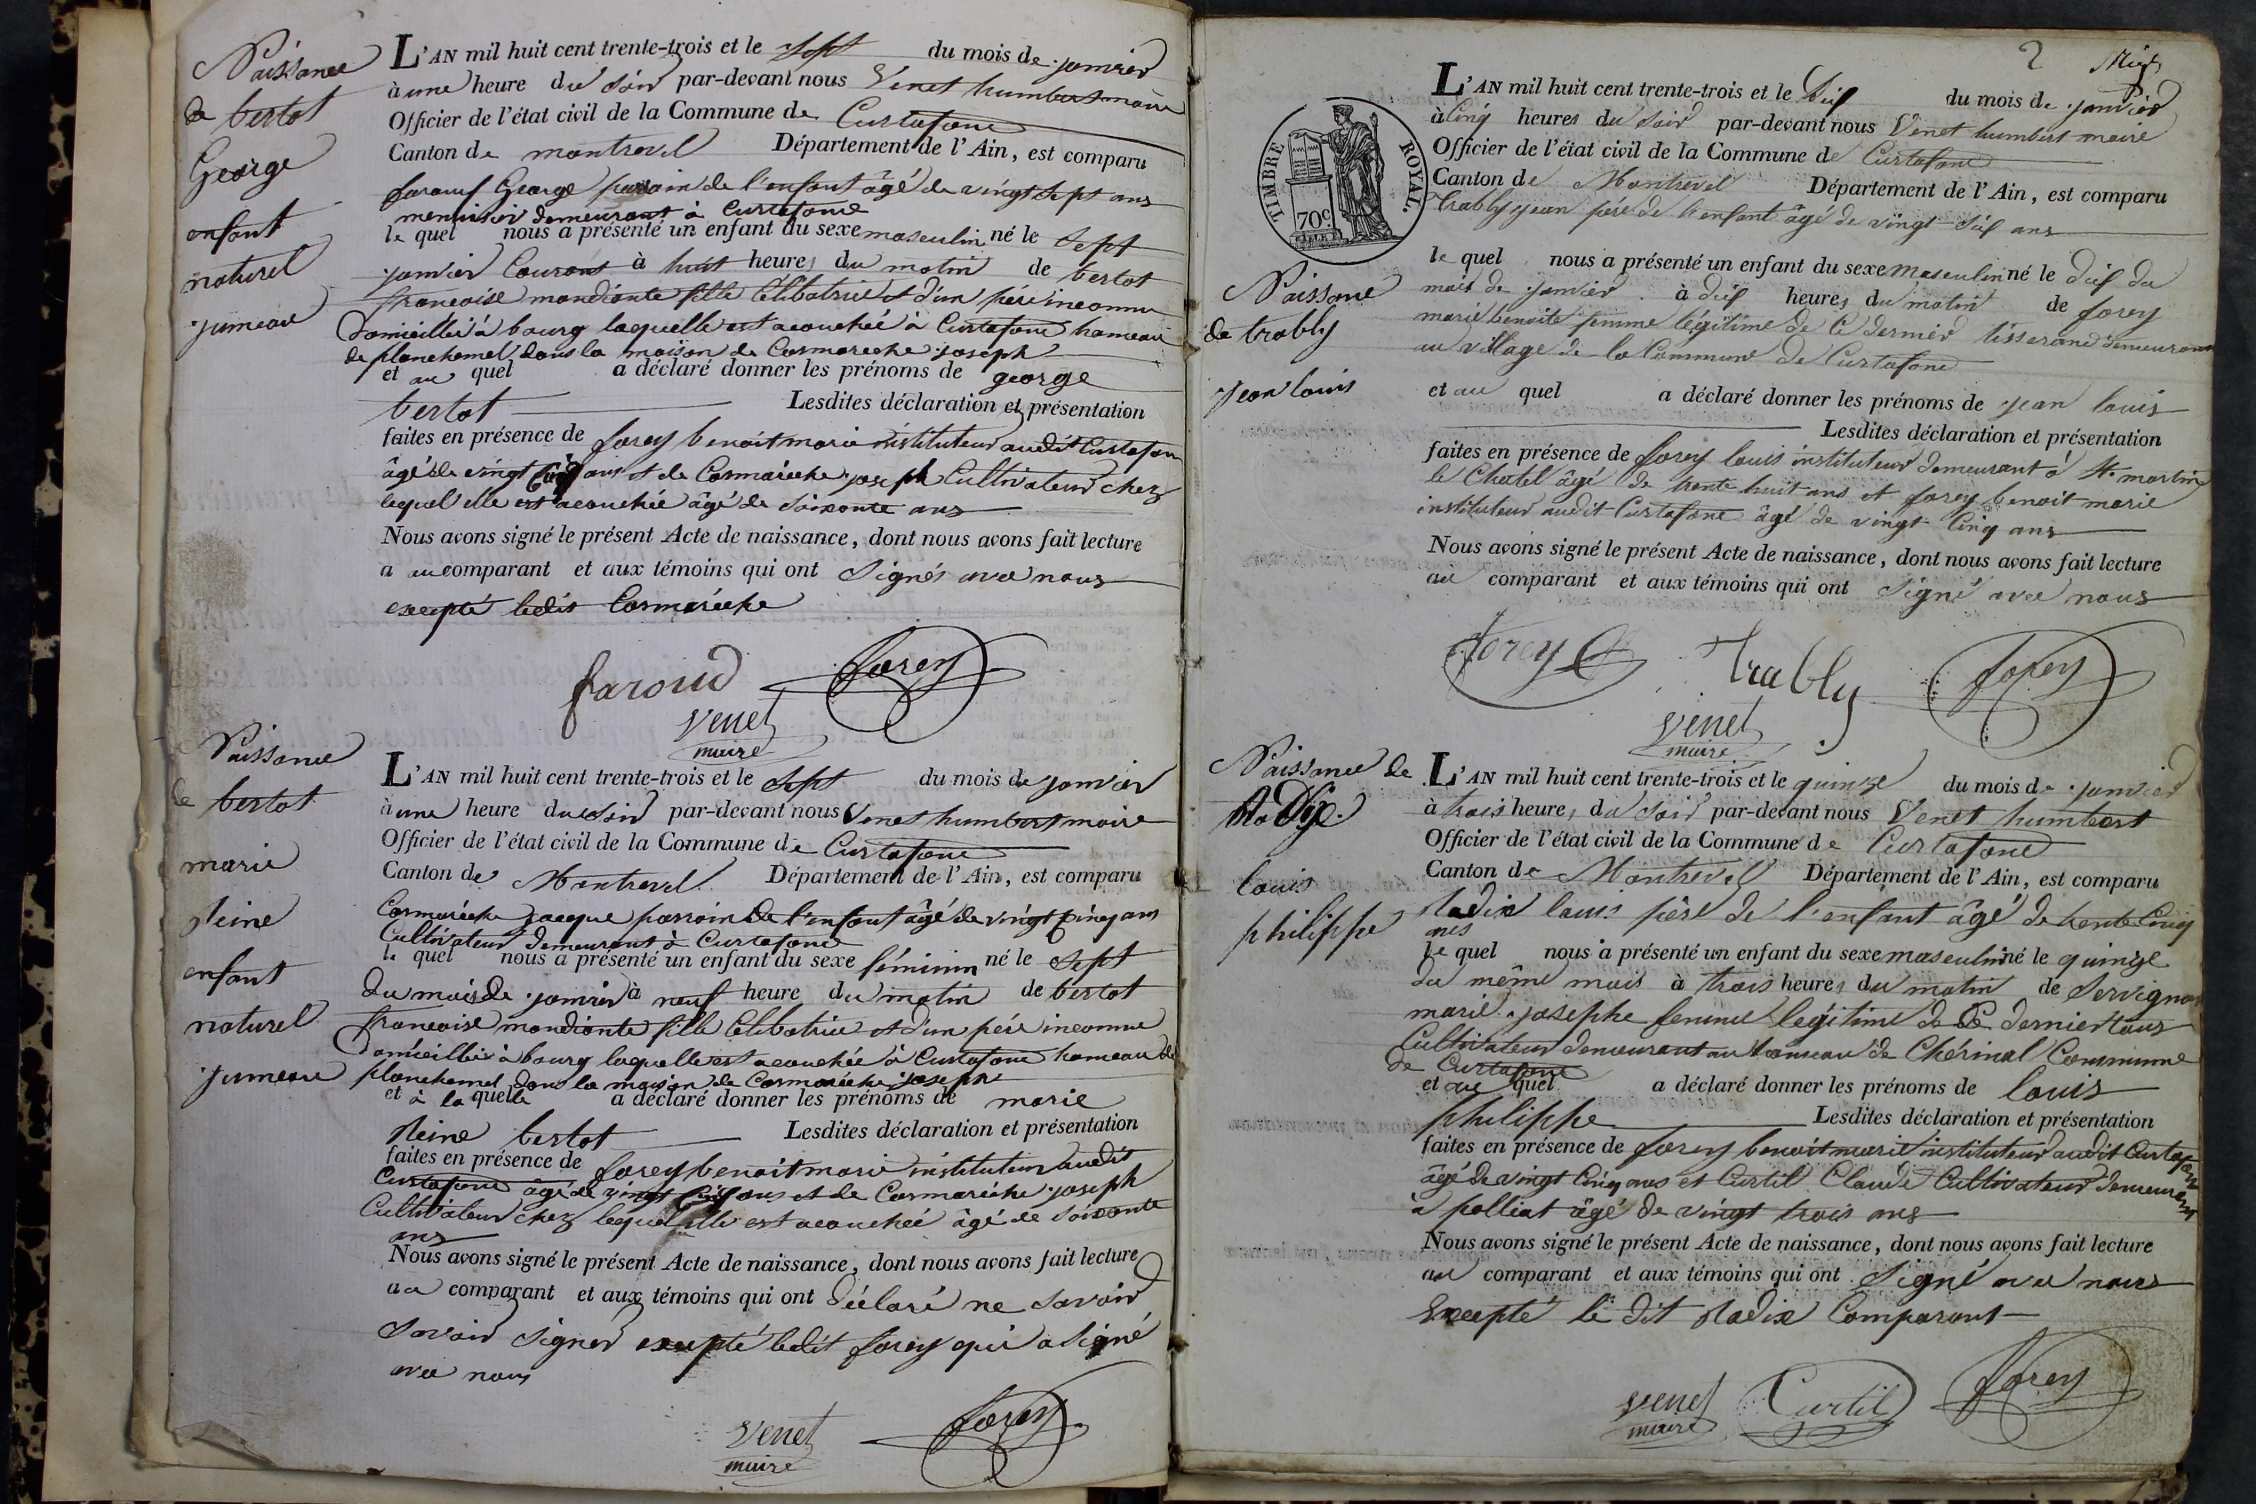 Naissance
de bertot
George
enfant
naturel
jumeau
L'AN mil huit cent trente-trois et le sept du mois de janvier
à une heure du soir par-devant nous Venet humbert maire
Officier de l'état civil de la Commune de Curtafond
Canton de montrevel Département de l'Ain, est comparu
George parrain de l'enfant âgé de vingt sept ans
menuisier demeurant à Curtafond
le quel nous a présenté un enfant du sexe masculin né le sept
janvier Courant à huit heures du matin de bertot
francoise mandiante fille Célibatrice et d'un père inconnu
Domicilliée à bourg laquelle est acouchée à Curtafond hameau
de planchemel dans la maison de Cormarèche joseph
et au quel a déclaré donner les prénoms de george
bertot Lesdites déclaration et présentation
faites en présence de forey benoit marie instituteur audit Curtafon
âgé de vingt Cinq ans et de Cormarèche joseph Cultivateur chez
lequel elle est acouchée âgé de soixante ans
Nous avons signé le présent Acte de naissance, dont nous avons fait lecture
a au comparant et aux témoins qui ont signés avec nous
excepté ledit Cormarèche
faroud forey
Venet
maire
Naissance
de bertot
marie
Reine
enfant
naturel
jumeau
L'AN mil huit cent trente-trois et le sept du mois de janvier
à une heure du soir par-devant nous Venet humbert maire
Officier de l'état civil de la Commune de Curtafond
Canton de Montrevel Département de l'Ain, est comparu
Cormarèche jacque parrain de l'enfant âgé de vingt Cinq ans
Cultivateur demeurant à Curtafond
le quel nous a présenté un enfant du sexe féminin né le sept
du mois de janvier à neuf heure du matin de bertot
francoise mandiante fille Célibatrice et d'un père inconnu
Domicilliée à bourg laquelle est acouchée à Curtafond hameau de
planchemel dans la maison de Cormarèche joseph
et à la quelle a déclaré donner les prénoms de marie
Reine bertot Lesdites déclaration et présentation
faites en présence de forey benoit marie instituteur audit
Curtafond âgé de vingt Cinq ans et de Cormarèche joseph
Cultivateur chez lequel elle est acouchée âgé de soixante
ans
Nous avons signé le présent Acte de naissance, dont nous avons fait lecture
au comparant et aux témoins qui ont déclaré ne savoir
savoir signer excepté ledit forey qui a signé
avec nous
Venet forey
maire
2
TIMBRE ROYAL.
70c
Naissance
de trably
jean louis
L'AN mil huit cent trente-trois et le dix du mois de janvier
à Cinq heures du soir par-devant nous Venet humbert maire
Officier de l'état civil de la Commune de Curtafond
Canton de Montrevel Département de l'Ain, est comparu
trably jean père de l'enfant âgé de vingt six ans
le quel nous a présenté un enfant du sexe masculin né le dix du
mois de janvier à dix heures du matin de forey
marie benoite femme légitime de Ce dernier tisserand demeurant
au village de la Commune de Curtafond
et au quel a déclaré donner les prénoms de jean louis
Lesdites déclaration et présentation
faites en présence de forey louis instituteur demeurant à St. martin
le Chatel âgé de trente huit ans et forey benoit marie
instituteur audit Curtafond âgé de vingt Cinq ans
Nous avons signé le présent Acte de naissance, dont nous avons fait lecture
au comparant et aux témoins qui ont signé avec nous
forey trably forey
Venet
maire
Naissance de
Radix
louis
philippe
L'AN mil huit cent trente-trois et le quinze du mois de janvier
à trois heures du soir par-devant nous Venet humbert
Officier de l'état civil de la Commune de Curtafond
Canton de Montrevel Département de l'Ain, est comparu
Radix louis père de l'enfant âgé de trente Cinq
ans
le quel nous a présenté un enfant du sexe masculin né le quinze
du même mois à trois heures du matin de Servignat
marie josephe femme légitime de Ce dernier tous
Cultivateur demeurant au hameau de Chérinal Commune
de Curtafond
et au quel a déclaré donner les prénoms de louis
philippe Lesdites déclaration et présentation
faites en présence de forey benoit marie instituteur audit Curtafond
âgé de vingt Cinq ans et Curtil Claude Cultivateur demeurant
à polliat âgé de vingt trois ans
Nous avons signé le présent Acte de naissance, dont nous avons fait lecture
au comparant et aux témoins qui ont signé avec nous
Excepté le dit Radix Comparant
Venet Curtil forey
maire